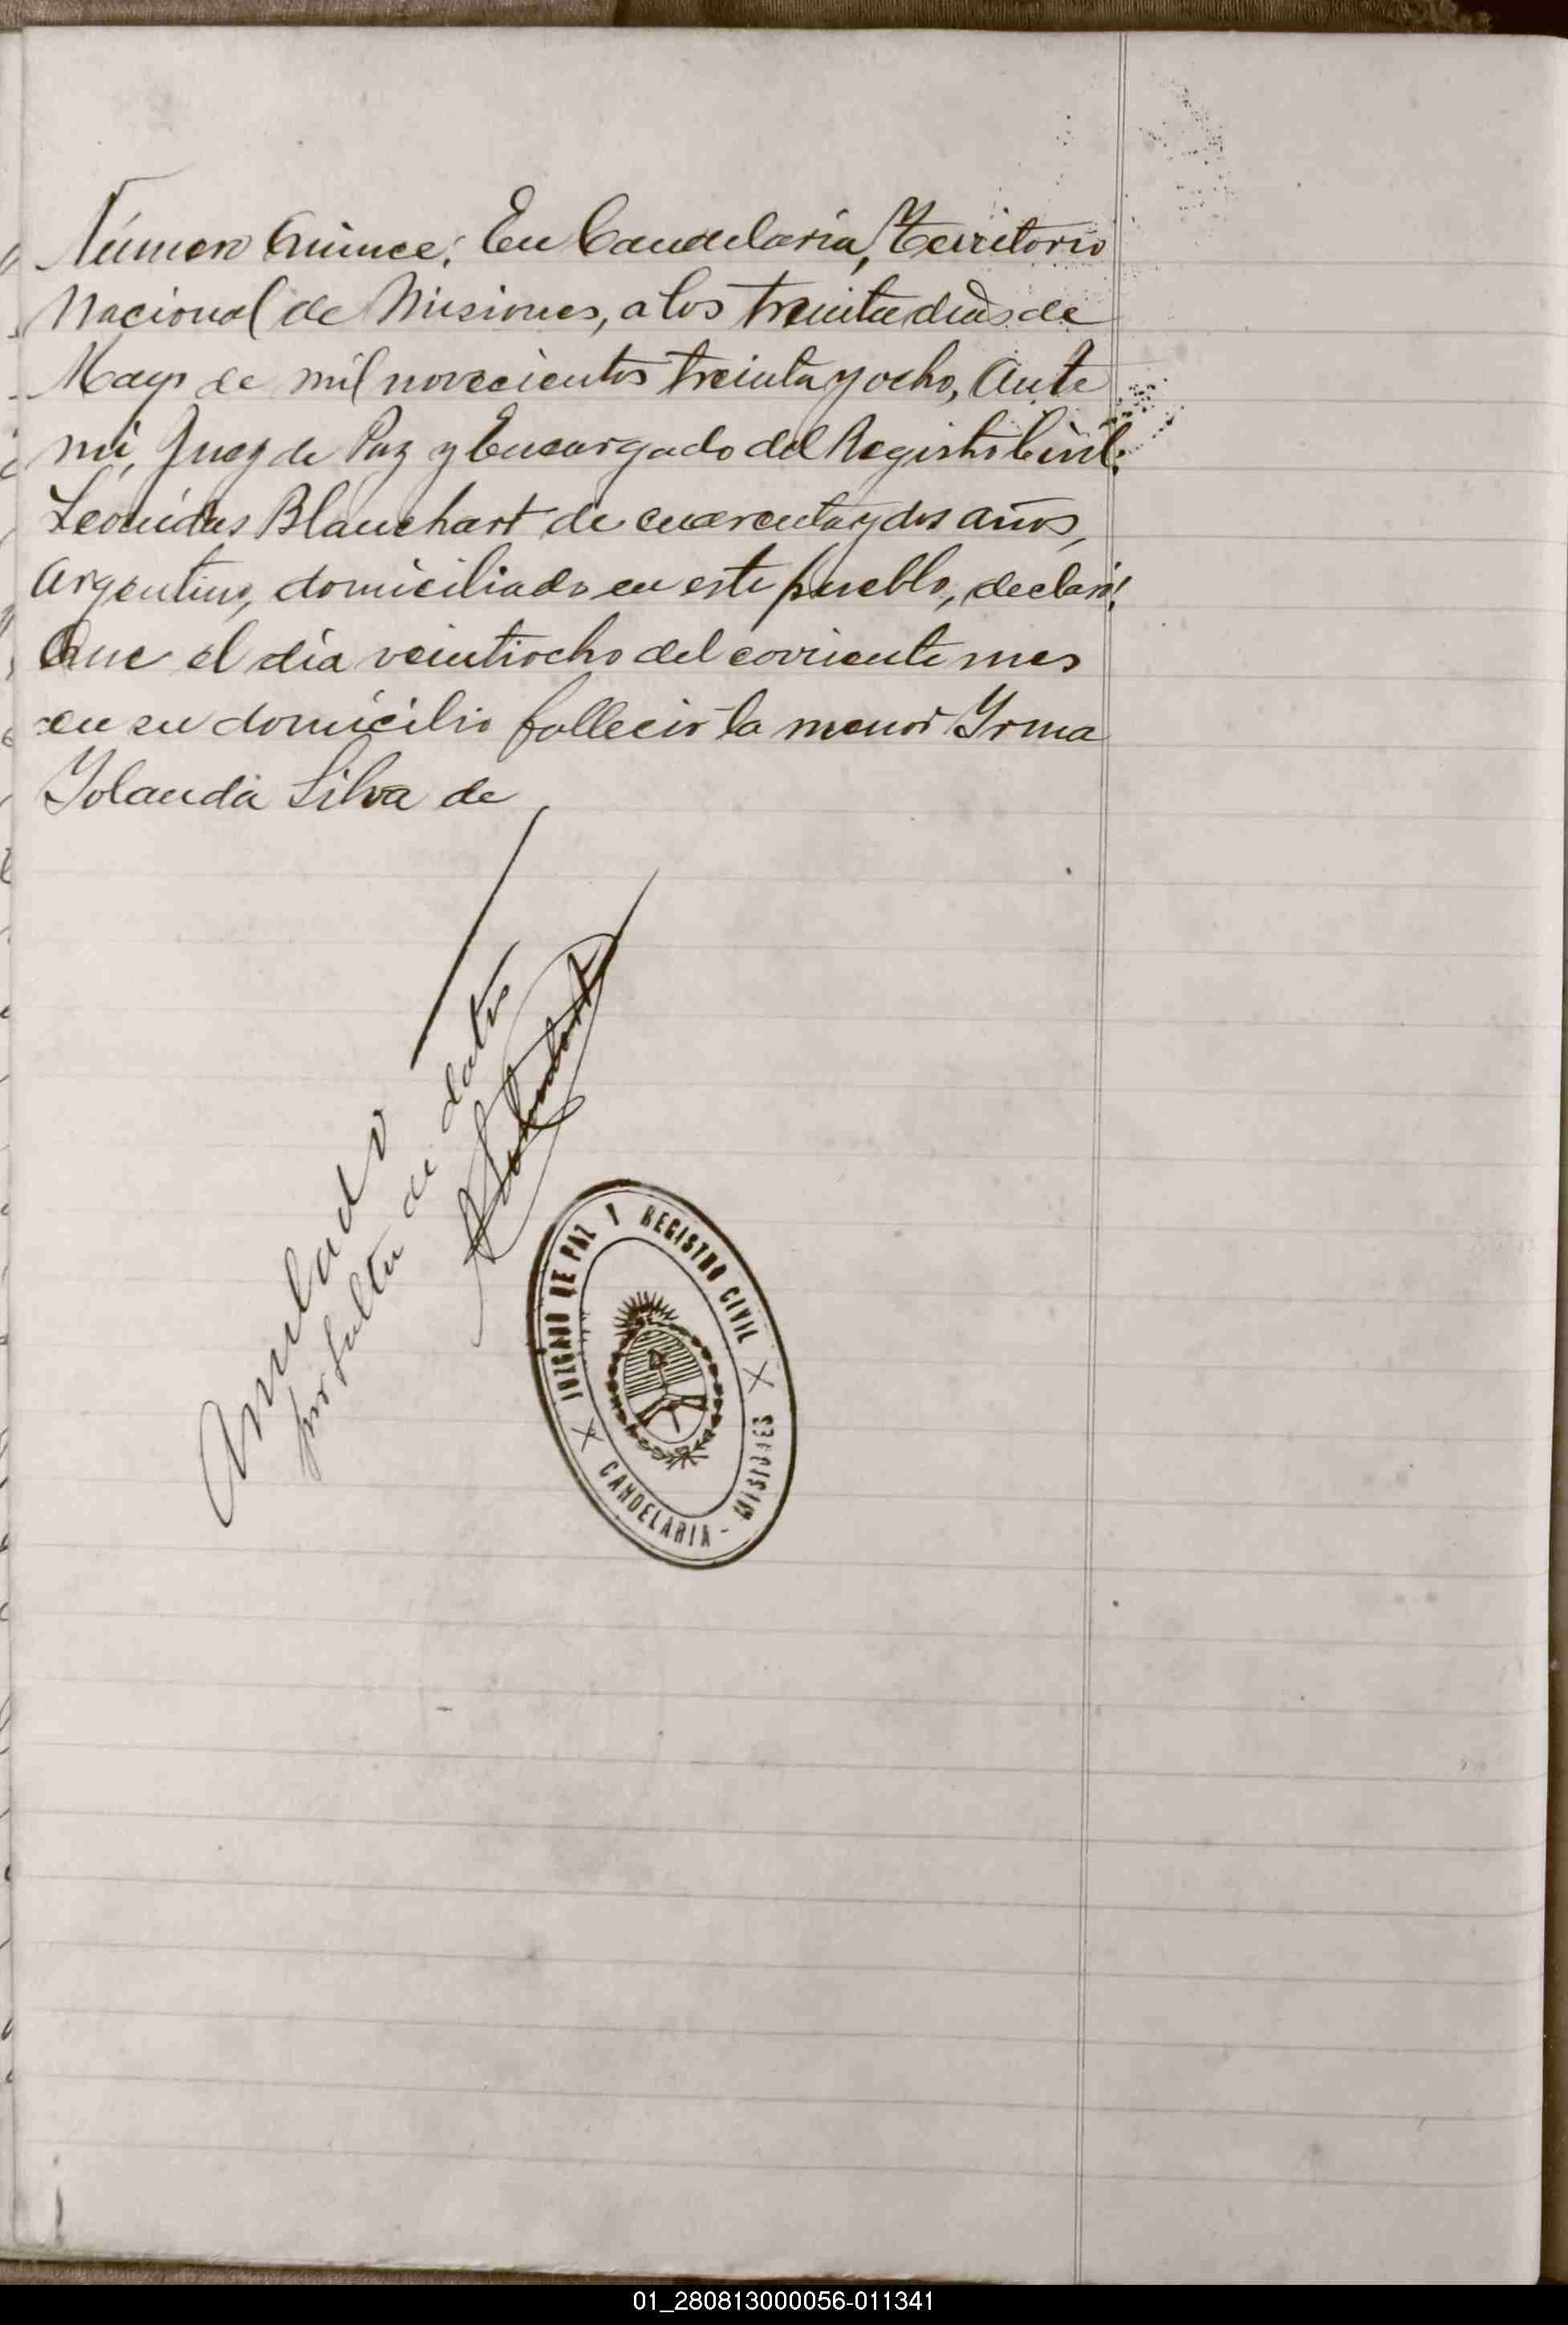 Número Quince: En Candelaria, Territorio
Nacional de Misiones, a los treinta dias de
Mayo de mil novecientos treinta y ocho, Ante
mi, Juez de Paz y Encargado del Registro Civil:
Leonidas Blanchart de cuarenta y dos años,
Argentino, domiciliado en este pueblo, declaró:
Que el día veintiocho del corriente mes
en su domicilio falleció la menor Yrma
Yolanda Silva de
Anulado
por falta de datos
JUZGADO DE PAZ Y REGISTRO CIVIL
CANDELARIA - MISIONES
01_280813000056-011341